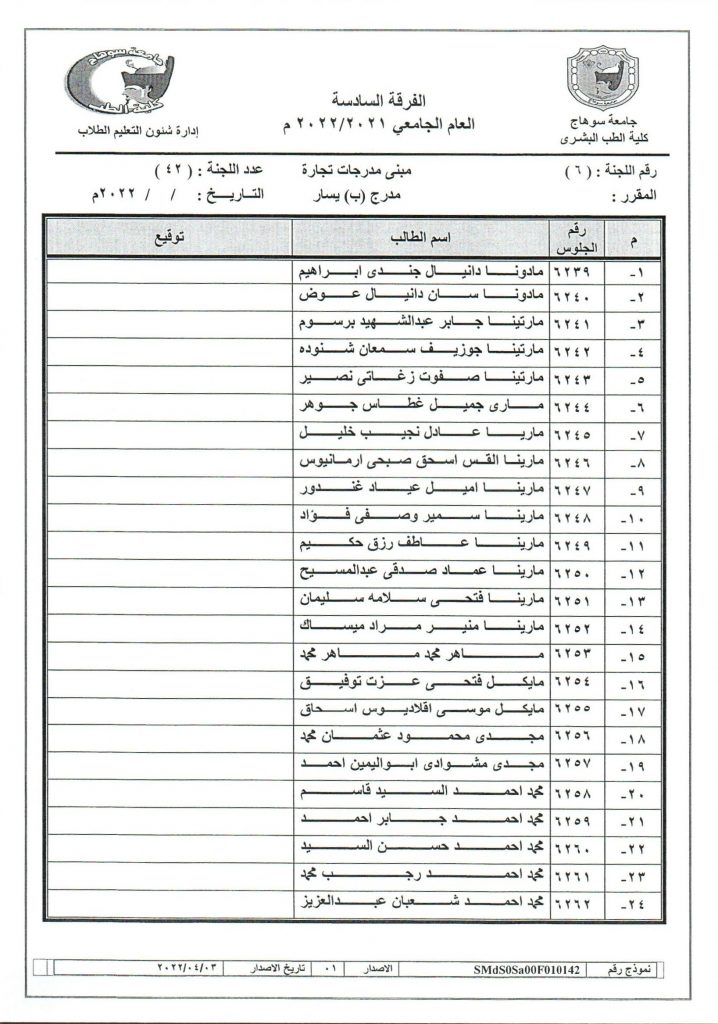 جامعة سوهاج
كلية الطب
إدارة شئون التعليم الطلاب
الفرقة السادسة
العام الجامعي ٢٠٢٢/٢٠٢١ م
جامعة سوهاج
كلية الطب البشرى
رقم اللجنة : ( ٦ ) مبنى مدرجات تجارة عدد اللجنة : ( ٤٢ )
المقرر : مدرج (ب) يسار التاريخ : / / ٢٠٢٢م
م رقم الجلوس اسم الطالب توقيع
١- ٦٢٣٩ مادونا دانيال جندى ابراهيم
٢- ٦٢٤٠ مادونا سان دانيال عوض
٣- ٦٢٤١ مارتينا جابر عبدالشهيد برسوم
٤- ٦٢٤٢ مارتينا جوزيف سمعان شنوده
٥- ٦٢٤٣ مارتينا صفوت زغاتى نصير
٦- ٦٢٤٤ مارى جميل غطاس جوهر
٧- ٦٢٤٥ ماريا عادل نجيب خليل
٨- ٦٢٤٦ مارينا القس اسحق صبحى ارمانيوس
٩- ٦٢٤٧ مارينا اميل عياد غندور
١٠- ٦٢٤٨ مارينا سمير وصفى فؤاد
١١- ٦٢٤٩ مارينا عاطف رزق حكيم
١٢- ٦٢٥٠ مارينا عماد صدقى عبدالمسيح
١٣- ٦٢٥١ مارينا فتحى سلامه سليمان
١٤- ٦٢٥٢ مارينا منير مراد ميساك
١٥- ٦٢٥٣ ماهر محمد ماهر محمد
١٦- ٦٢٥٤ مايكل فتحى عزت توفيق
١٧- ٦٢٥٥ مايكل موسى اقلاديوس اسحاق
١٨- ٦٢٥٦ مجدى محمود عثمان محمد
١٩- ٦٢٥٧ مجدى مشوادى ابواليمين احمد
٢٠- ٦٢٥٨ محمد احمد السيد قاسم
٢١- ٦٢٥٩ محمد احمد جابر احمد
٢٢- ٦٢٦٠ محمد احمد حسن السيد
٢٣- ٦٢٦١ محمد احمد رجب محمد
٢٤- ٦٢٦٢ محمد احمد شعبان عبدالعزيز
نموذج رقم SMdS0Sa00F010142 الاصدار ٠١ تاريخ الاصدار ٢٠٢٢/٠٤/٠٣